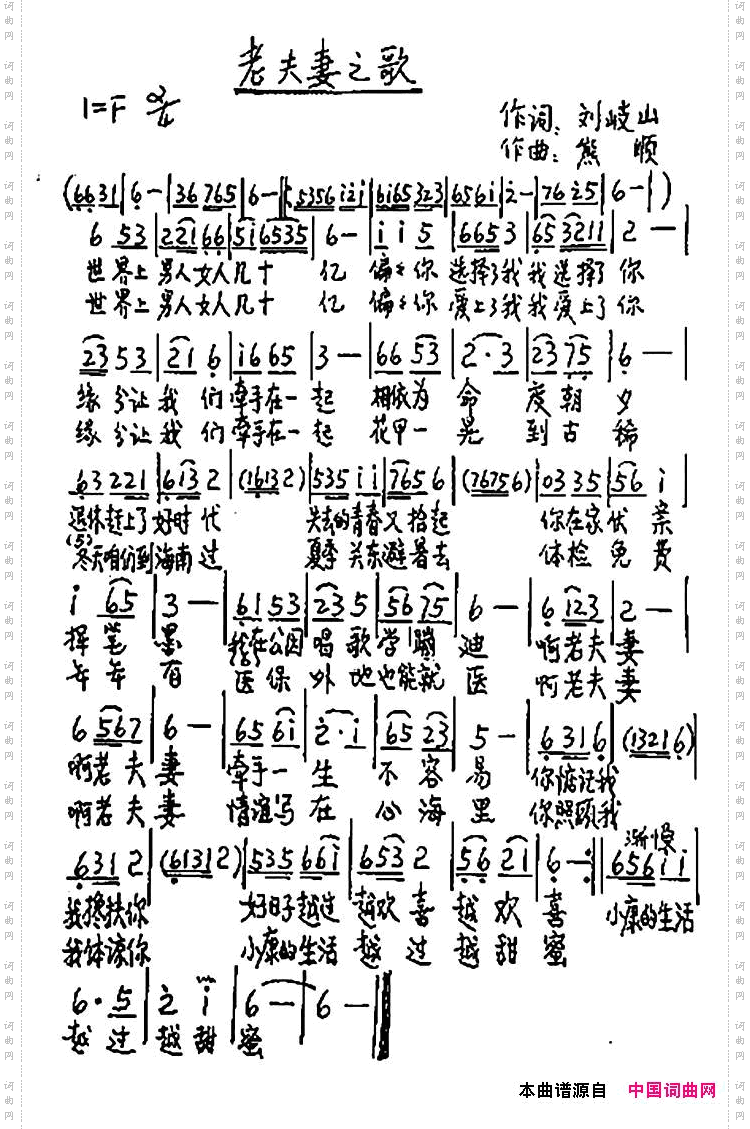 老夫妻之歌
1=F 2/4
作词：刘岐山
作曲：熊 顺
(6631|6-|36 765|6-‖:5356 i2i|6i65 323|656i|2-|76 25|6-|)
6 53|221 66|5i6535|6-|i i5|6653|65 3211|2-|
世界上 男人女人几十 亿 偏々你 选择了我我选择了你
世界上 男人女人几十 亿 偏々你 爱上了我我爱上了你
23 53|21 6|i6 65|3-|66 53|2·3|23 75|6-|
缘分让我 们牵手在一起 相依为 命 度朝 夕
缘分让我 们牵手在一起 花甲一 晃 到古 稀
63 221|613 2|(1613 2)|535 ii|765 6|(7675 6)|03 35|56 i|
退休赶上了好时代 失去的青春又拾起 你在家伏 案
(53)
冬天咱们到海南过 夏季关东避暑去 体检免 费
i 65|3-|61 53|23 5|56 75|6-|6 123|2-|
挥笔 墨 我在公园 唱歌学蹦 迪 啊老夫 妻
年年 有 医保 外地也能就 医 啊老夫 妻
6 567|6-|65 6i|2·i|65 23|5-|631 6|(1321 6)|
啊老夫 妻 牵手一 生 不容 易 你惦记我
啊老夫 妻 情谊写 在 心海 里 你照顾我
渐慢
631 2|(6131 2)|535 66i|653 2|56 21|6-:‖656 ii|
我搀扶你 好日子越过 越欢喜 越欢 喜 小康的生活
我体谅你 小康的生活 越过 越甜 蜜
6·5|2 i|6-|6-‖
越过 越甜 蜜
本曲谱源自 中国词曲网
词曲网